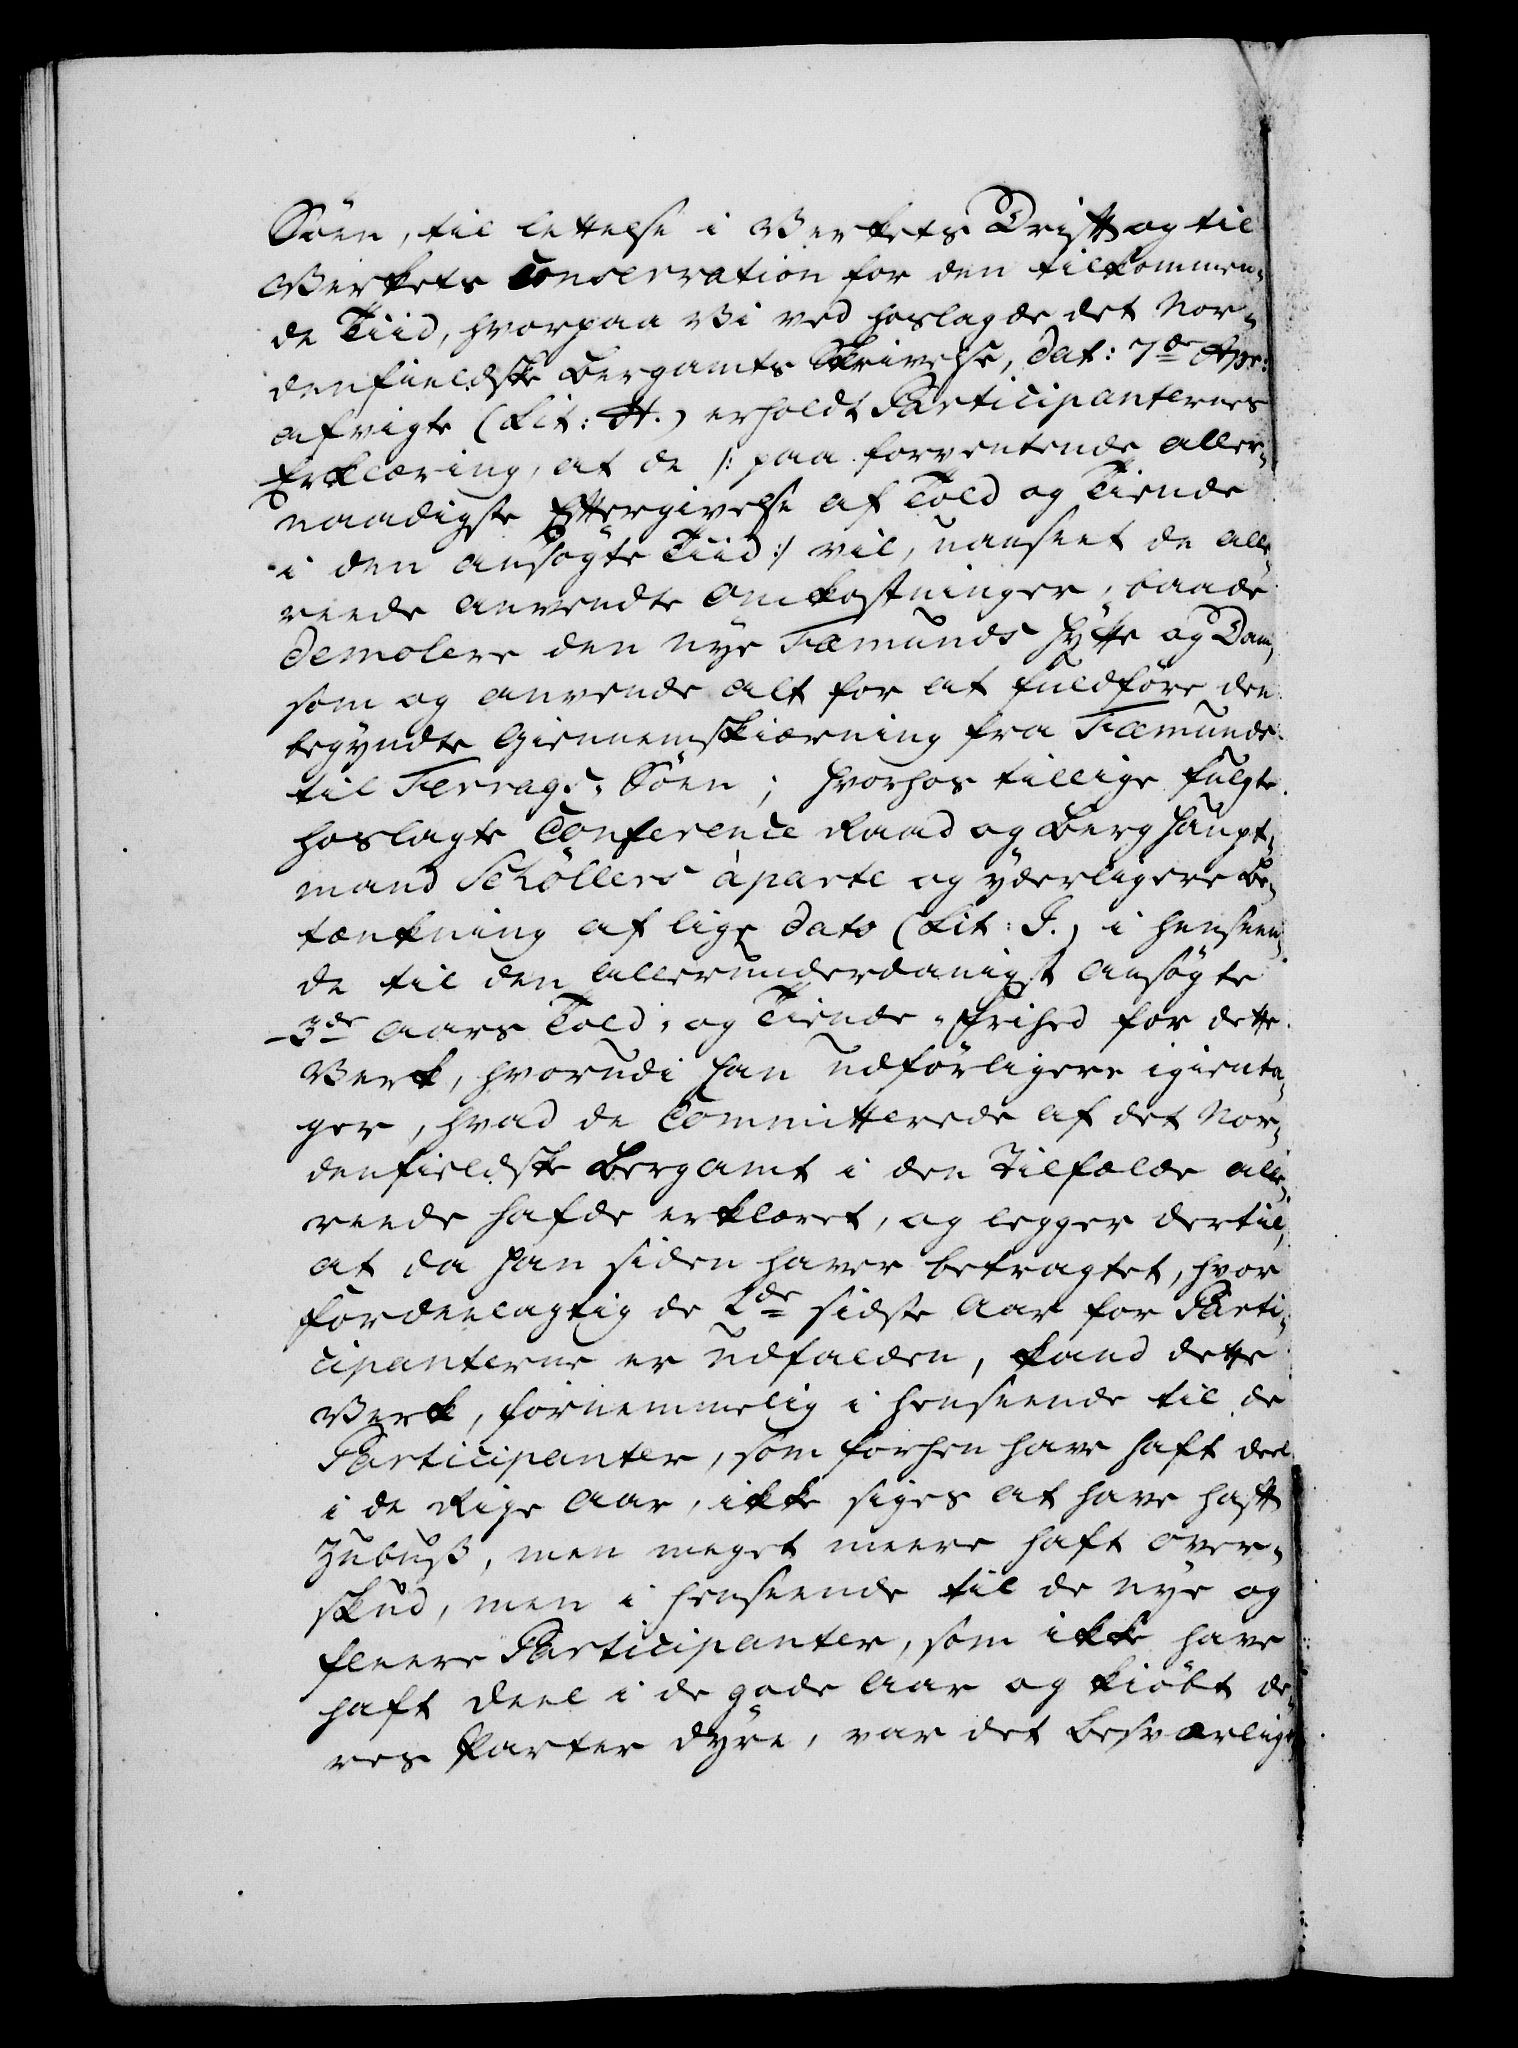 Söen, til lettelse i Verkets Drift og til
Verkets Conservation for den tilkommen¬
de Tiid, hvorpaa Vi ved hoslagde det Nor¬
denfieldske Bergamts Skrivelse, dat: 7de Apr:
afvigte (Lit: H.) erholdt Participanternes
Erklæring, at de /: paa forventende aller¬
naadigste Eftergivelse af Told og Tiende
i den ansøgte Tiid :/ vil, uanseet de alle
reede anvendte Omkostninger, baade
demolere den nye Fæmunds Hytte og Dam,
som og anvende alt for at fuldföre den
begyndte Giennemskiærning fra Fæmunds
til Ferrags-Söen; hvorhos tillige fulgte
hoslagte Conference Raad og Berg Haupt¬
mand Schöllers àparte og yderligere Be¬
tænkning af lige dato (Lit: J.) i henseen¬
de til den allerunderdanigst ansøgte
3de Aars Told- og Tiende-Frihed for dette
Verk, hvorudi han udförligere igienta¬
ger, hvad de Committerede af det Nor¬
denfieldske Bergamt i den Tilfælde alle¬
reede hafde erklæret, og legger dertil,
at da han siden haver betragtet, hvor
fordeelagtig de 2de sidste Aar for Parti¬
cipanterne er udfalden, kand dette
Verk, fornemmelig i henseende til de
Participanter, som forhen have haft deel
i de Rige Aar, ikke siges at have haft
Zubusß, men meget meere haft Over¬
skud, men i henseende til de nye og
fleere Participanter, som ikke have
haft deel i de gode Aar og kiöbt de¬
res Parter dyre, var det besværlig